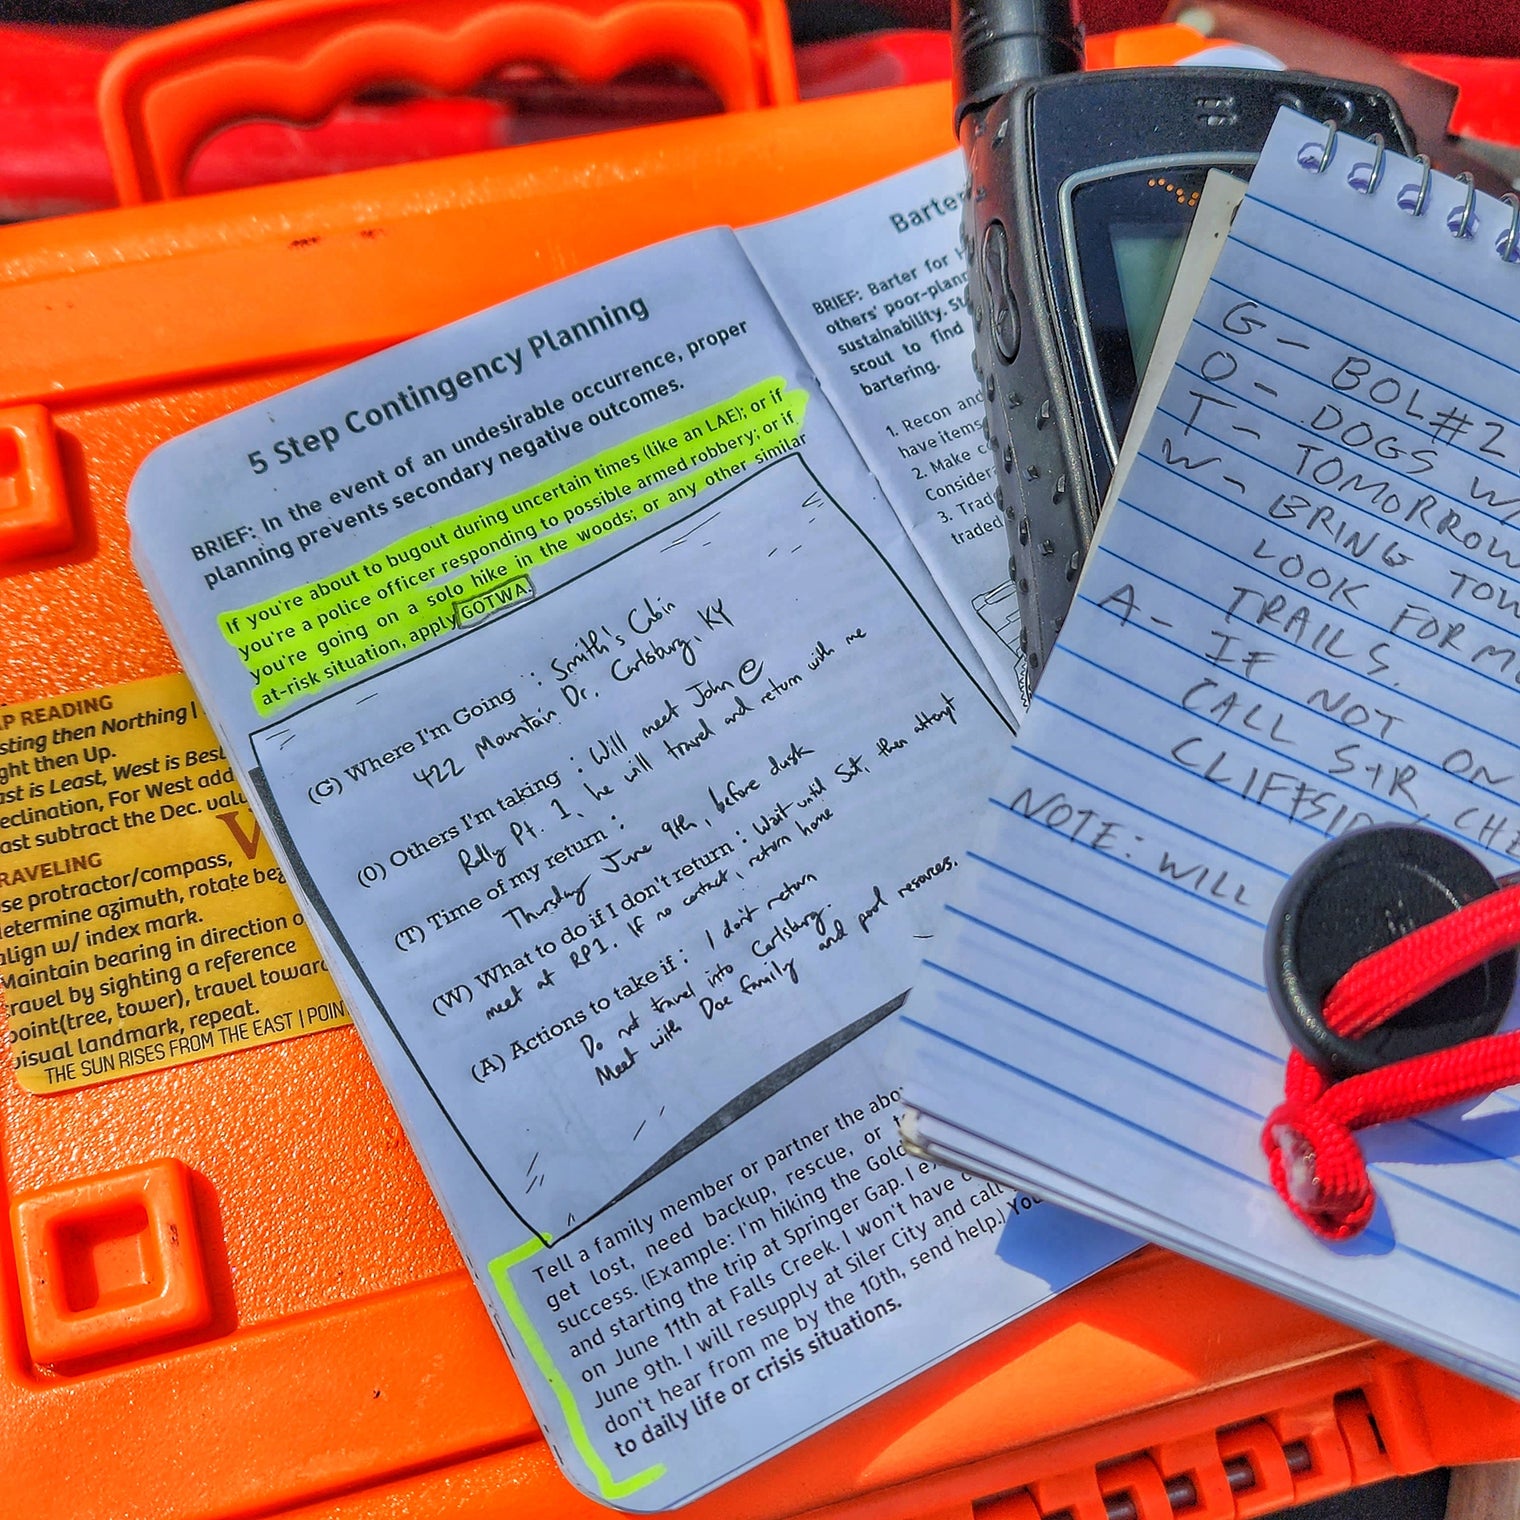 5 Step Contingency Planning
BRIEF: In the event of an undesirable occurrence, proper
planning prevents secondary negative outcomes.
If you're about to bugout during uncertain times (like an LAE); or if
you're a police officer responding to possible armed robbery; or if
you're going on a solo hike in the woods; or any other similar
at-risk situation, apply GOTWA.
(G) Where I'm Going : Smith's Cabin
422 Mountain Dr. Carlsburg, KY
(O) Others I'm taking : Will meet John @
Rally Pt. 1, he will travel and return with me
(T) Time of my return :
Thursday June 9th, before dusk
(W) What to do if I don't return : Wait until Sat, then attempt
meet at RP1. If no contact, return home
(A) Actions to take if : I don't return
Do not travel into Carlsburg.
Meet with Doe family and pool resources.
Tell a family member or partner the abo
get lost, need backup, rescue, or t
success. (Example: I'm hiking the Gold
and starting the trip at Springer Gap. I e
on June 11th at Falls Creek. I won't have c
June 9th. I will resupply at Siler City and call
don't hear from me by the 10th, send help.) You
to daily life or crisis situations.
Barter
BRIEF: Barter for
others' poor-plann
sustainability. St
scout to find
bartering.
1. Recon and
have items
2. Make c
Consider
3. Trad
traded
G - BOL#2
O - DOGS W/
T - TOMORROW
W - BRING TOW
LOOK FOR M
TRAILS.
A - IF NOT ON
CALL S+R, CHE
CLIFFSID
NOTE: WILL
AP READING
sting then Northing |
ght then Up.
ast is Least, West is Best
eclination, For West add
ast subtract the Dec. valu
RAVELING
se protractor/compass,
etermine azimuth, rotate bez
align w/ index mark.
Maintain bearing in direction o
ravel by sighting a reference
point(tree, tower), travel toward
visual landmark, repeat.
THE SUN RISES FROM THE EAST | POIN